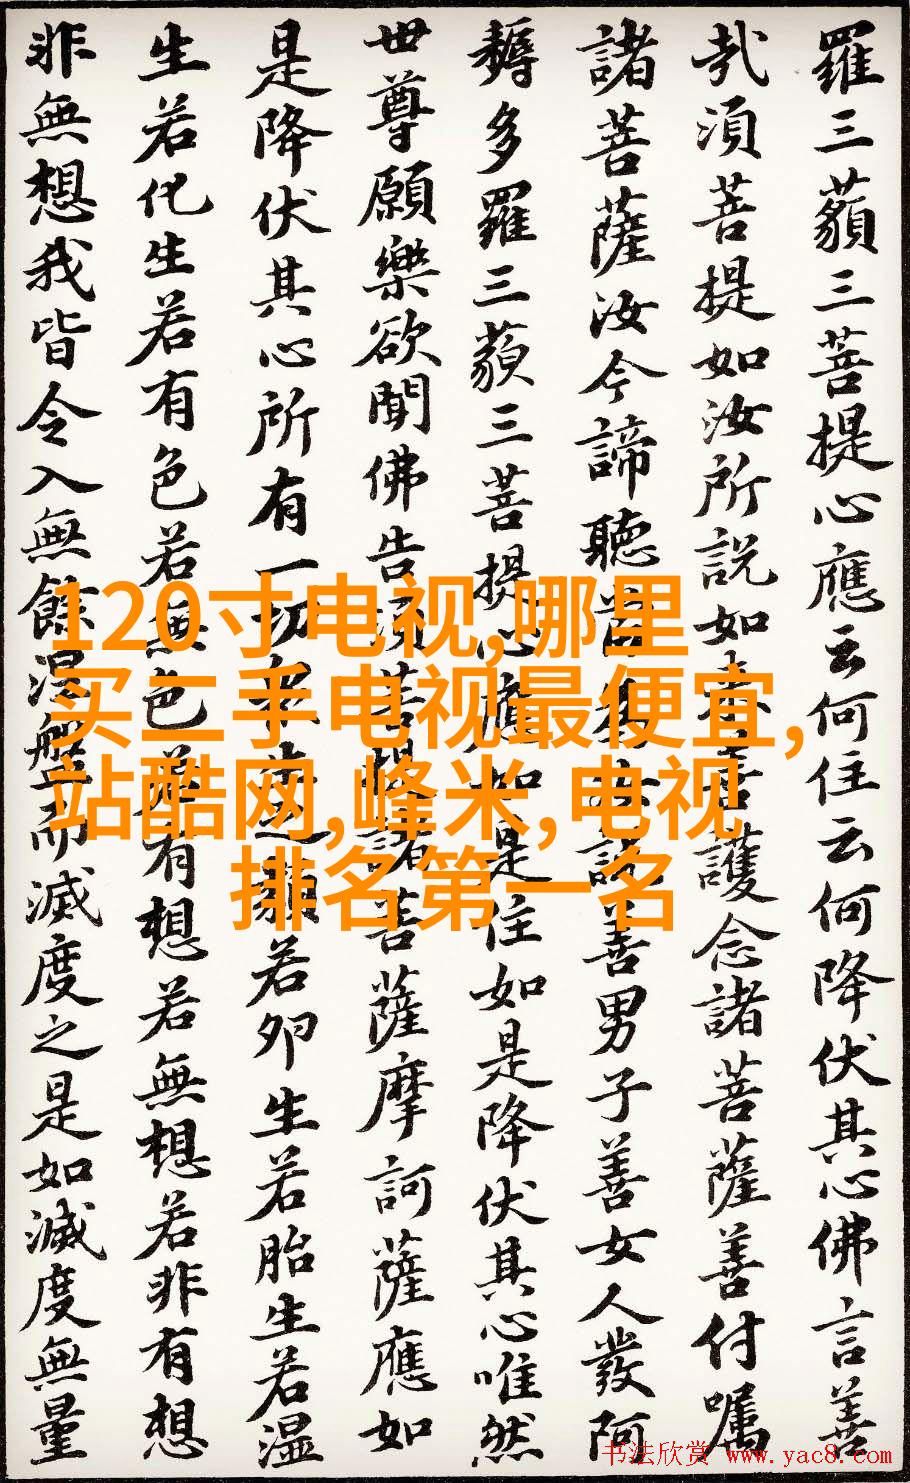 羅三藐三菩提心應云何住云何降伏其心佛言善
哉須菩提如汝所説如来善護念諸菩薩善付囑
諸菩薩汝今諦聽當為汝説善男子善女人發阿
耨多羅三藐三菩提心應如是住如是降伏其心唯然
世尊願樂欲聞佛告須菩提諸菩薩摩訶薩應如
是降伏其心所有一切衆生之類若卵生若胎生若温
生若化生若有色若無色若有想若無想若非有想
非無想我皆令入無餘涅盤而滅度之是如滅度無量
120寸电视,哪里
买二手电视最便宜,
站酷网,峰米,电视
排名第一名
书法欣赏 www.yac8.com